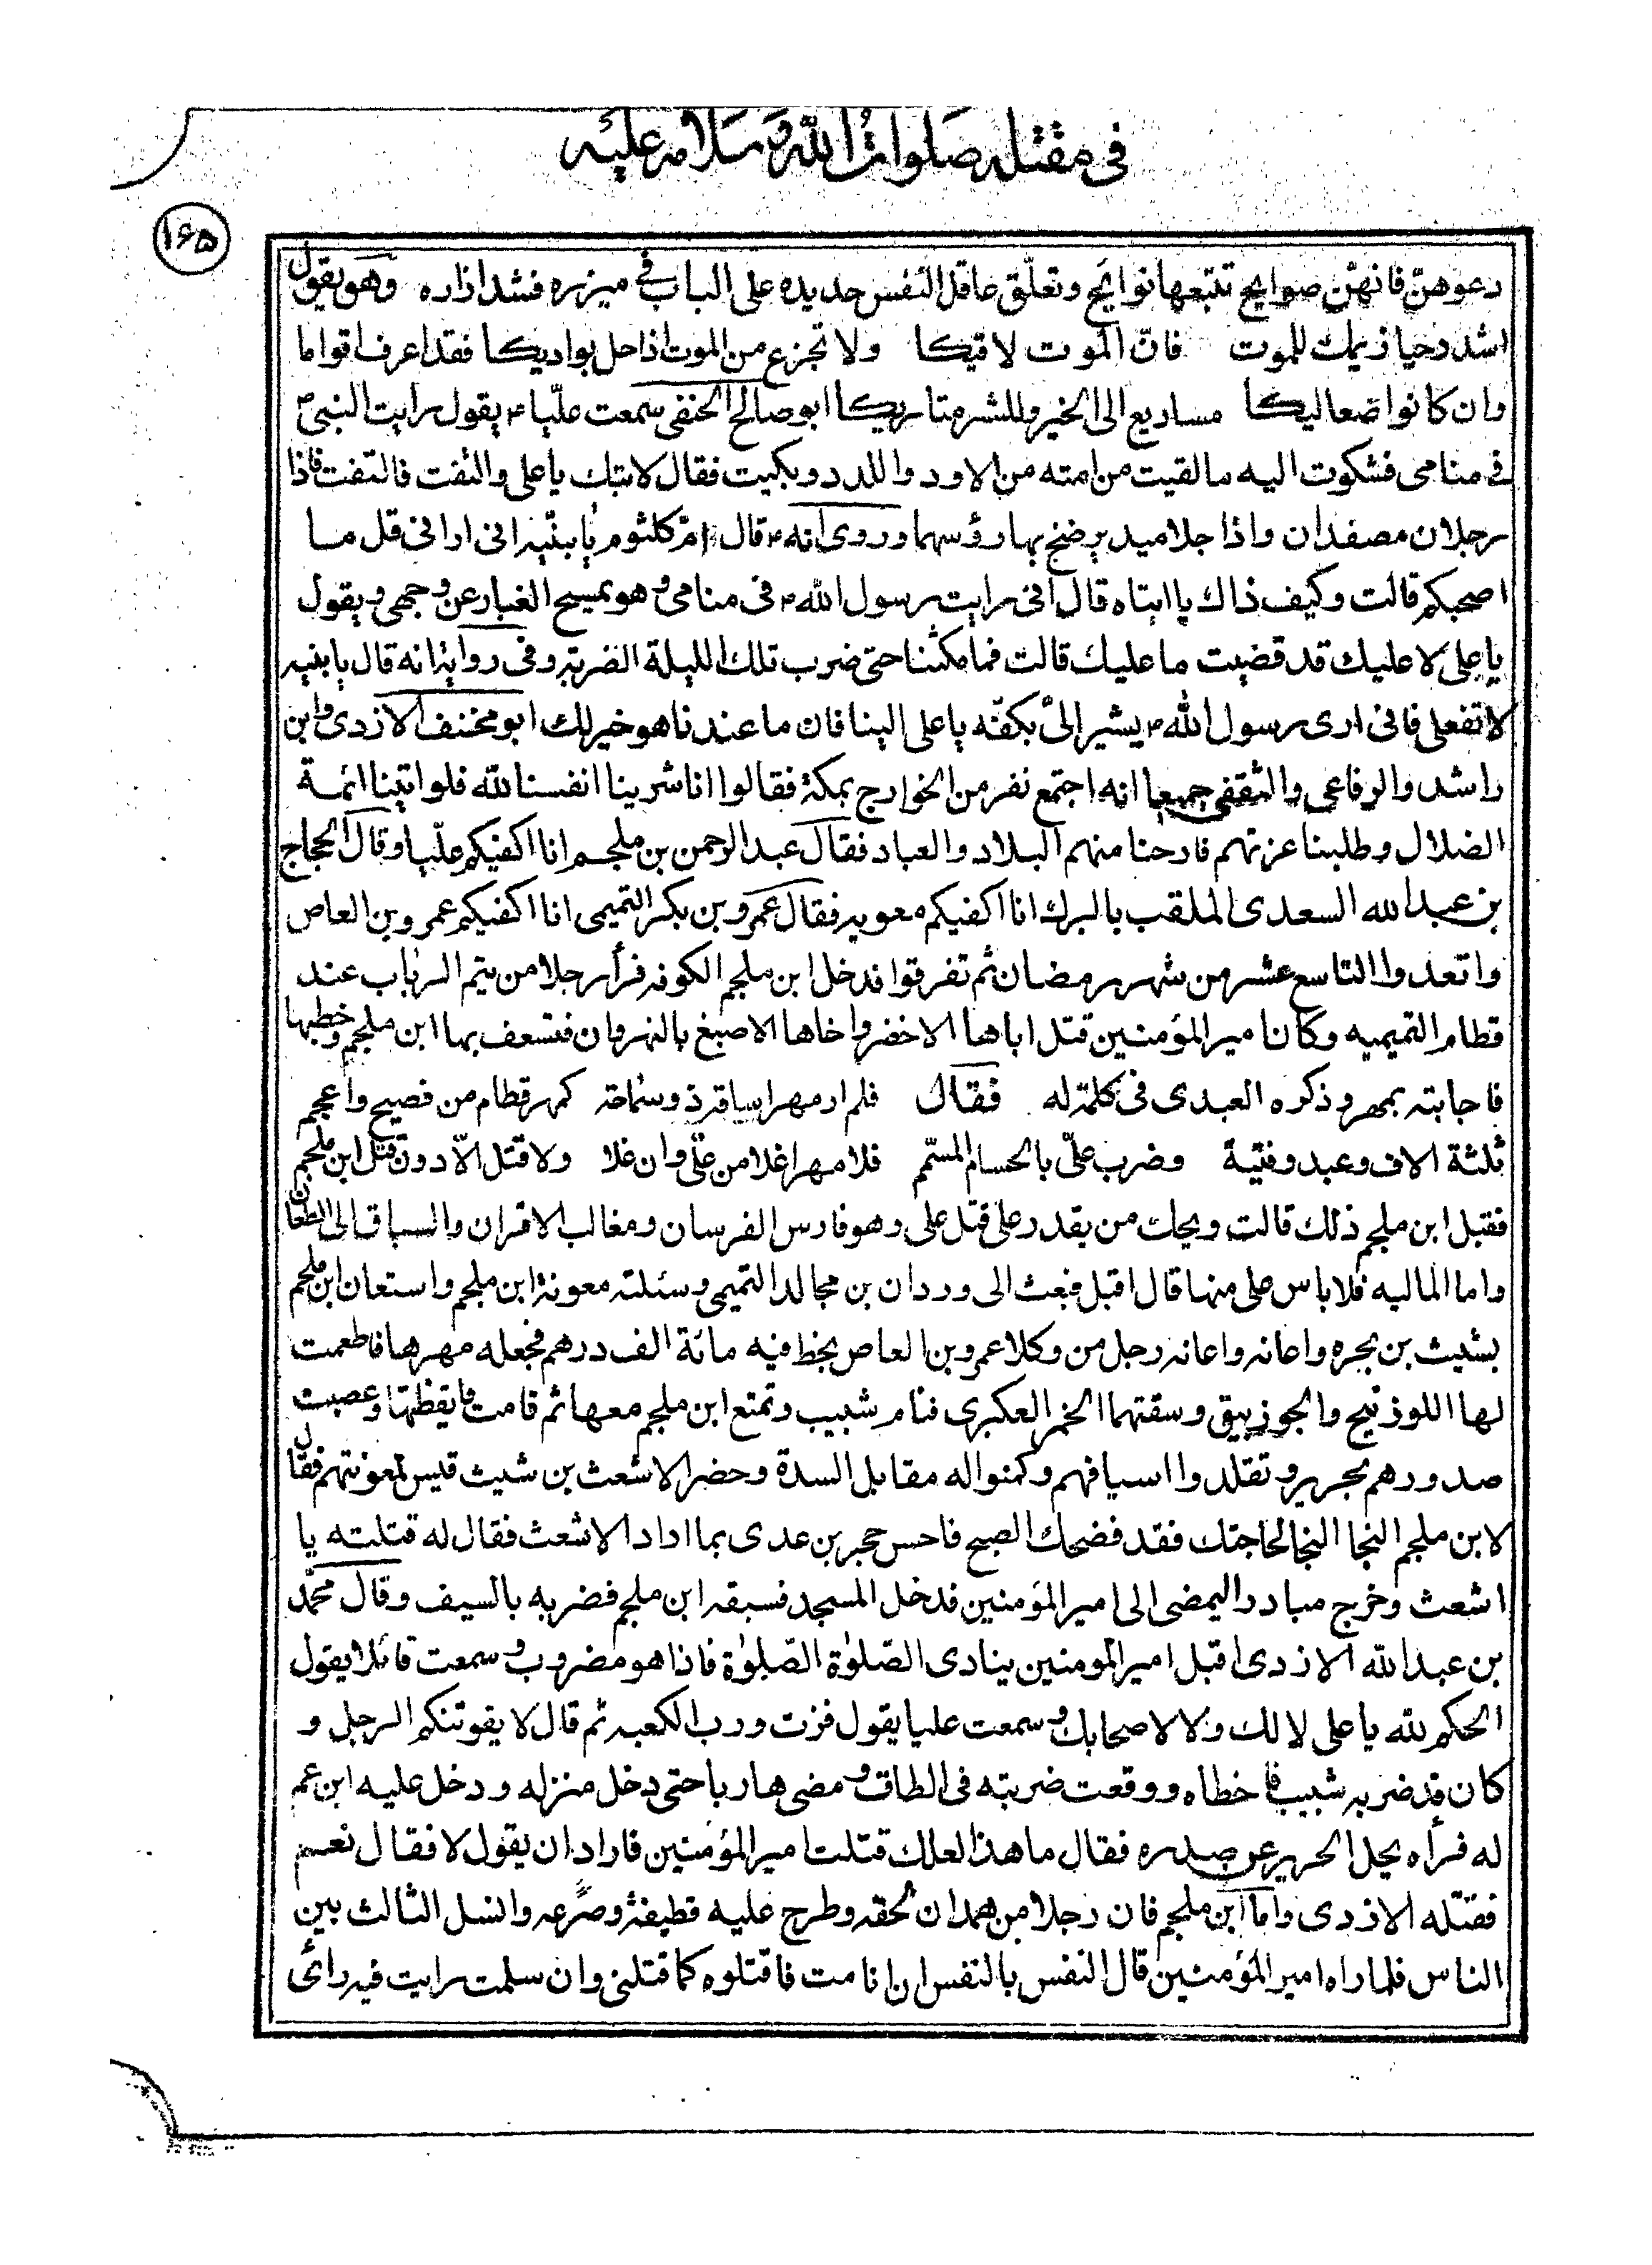 في مقتله صلوات الله وسلامه عليه
١۶۵
دعوهنّ فانهنّ صوايح تتبعها نوايح وتعلّق حديده على الباب في ميزره فشد ازاره وهو يقول
اشدد حيازيمك للموت فانّ الموت لاقيكا ولا تجزع من الموت اذا حل بواديكا فقد اعرف اقواما
وان كانوا صعاليكا مساريع الى الخير وللشر متاريكا ابو صالح الحنفى سمعت عليّا ع يقول رايت النبىّ ص
فى منامى فشكوت اليه ما لقيت من امته من الاود واللدد وبكيت فقال لا تبك يا على والتفت فالتفت فاذا
رجلان مصفدان واذا جلاميد يرضخ بها رؤسهما وروى انه ع قال لام كلثوم يا بنيّه انى ارانى قل ما
اصحبكم قالت وكيف ذاك يا ابتاه قال انى رايت رسول الله ص فى منامى وهو يمسح الغبار عن وجهى ويقول
يا على لا عليك قد قضيت ما عليك قالت فما مكثنا حتى ضرب تلك الليلة الضربة وفى رواية انه قال يا بنيه
لا تفعلى فانى ارى رسول الله ص يشير الىّ بكفّه يا على الينا فان ما عندنا هو خير لك ابو مخنف الازدى وابن
راشد والرفاعى والثقفى جميعا انه اجتمع نفر من الخوارج بمكة فقالوا انا شرينا انفسنا لله فلو اتينا ائمة
الضلال وطلبنا عزتهم فارحنا منهم البلاد والعباد فقال عبد الرحمن بن ملجم انا اكفيكم عليّا وقال الحجاج
بن عبد الله السعدى الملقب بالبرك انا اكفيكم معويه فقال عمرو بن بكر التميمى انا اكفيكم عمرو بن العاص
واتعدوا التاسع عشر من شهر رمضان ثم تفرقوا فدخل ابن ملجم الكوفه فرأى رجلا من تيم الرباب عند
قطام التميميه وكان امير المؤمنين قتل اباها الاخضر واخاها الاصبغ بالنهروان فتسعف بها ابن ملجم وخطبها
فاجابته بمهر وذكره العبدى فى كلمة له فقال فلم ار مهرا ساقه ذو سماحة كمهر قطام من فصيح واعجم
ثلثة الاف وعبد وفتية وضرب علىّ بالحسام المسمّم فلا مهر اغلا من علىّ وان غلا ولا قتل الّا دون قتل ابن ملجم
فقبل ابن ملجم ذلك قالت ويحك من يقدر على قتل على وهو فارس الفرسان ومغالب الاقران والسباق الى الطعان
واما الماليه فلا باس على منها قال اقبل فبعث الى وردان بن مجالد التميمى وسئلته معونة ابن ملجم واستعان ابن ملجم
بشبيث بن بجره واعانه واعانه رجل من وكلا عمرو بن العاص بخط فيه مائة الف درهم فجعله مهرها فاطعمت
لها اللوزنيج والجوزبيق وسقتهما الخمر العكبرى فنام شبيب وتمتع ابن ملجم معها ثم قامت فايقظتها وعصبت
صدورهم بحرير وتقلدوا اسيافهم وكمنوا له مقابل السدة وحضر الاشعث بن شيث قيس لمعونتهم فقال
لابن ملجم النجا النجا لحاجتك فقد فضحك الصبح فاحس حجر بن عدى بما اراد الاشعث فقال له قتلته يا
اشعث وخرج مبادرا ليمضى الى امير المؤمنين فدخل المسجد فسبقه ابن ملجم فضربه بالسيف وقال محمّد
بن عبد الله الازدى اقبل امير المومنين ينادى الصّلوٰة الصّلوٰة فاذا هو مضروب وسمعت قائلا يقول
الحكم لله يا على لا لك ولا لاصحابك وسمعت عليا يقول فزت ورب الكعبه ثم قال لا يفوتنكم الرجل و
كان قد ضربه شبيب فاخطاه ووقعت ضربته فى الطاق ومضى هاربا حتى دخل منزله ودخل عليه ابن عم
له فرأه يحل الحرير عن صدره فقال ما هذا لعلك قتلت امير المؤمنين فاراد ان يقول لا فقال نعم
فقتله الازدى واما ابن ملجم فان رجلا من همدان لحقه وطرح عليه قطيفة وصرعه وانسل الثالث بين
الناس فلما راه امير المؤمنين قال النفس بالنفس ان انا مت فاقتلوه كما قتلنى وان سلمت رايت فيه رائى